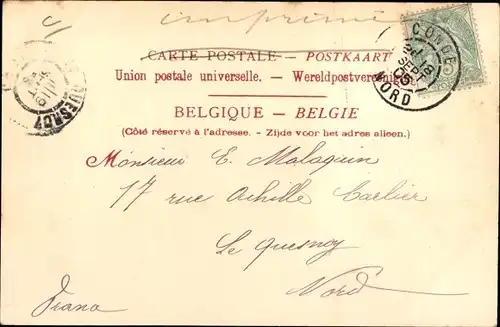 imprimé
CARTE POSTALE - POSTKAART
Union postale universelle. - Wereldpostvereniging
BELGIQUE - BELGIE
(Côté réservé à l'adresse. - Zijde voor het adres alleen.)
Monsieur E. Malaquin
17 rue Achille Carlier
Le Quesnoy
Nord
Diana
CONDE
NORD